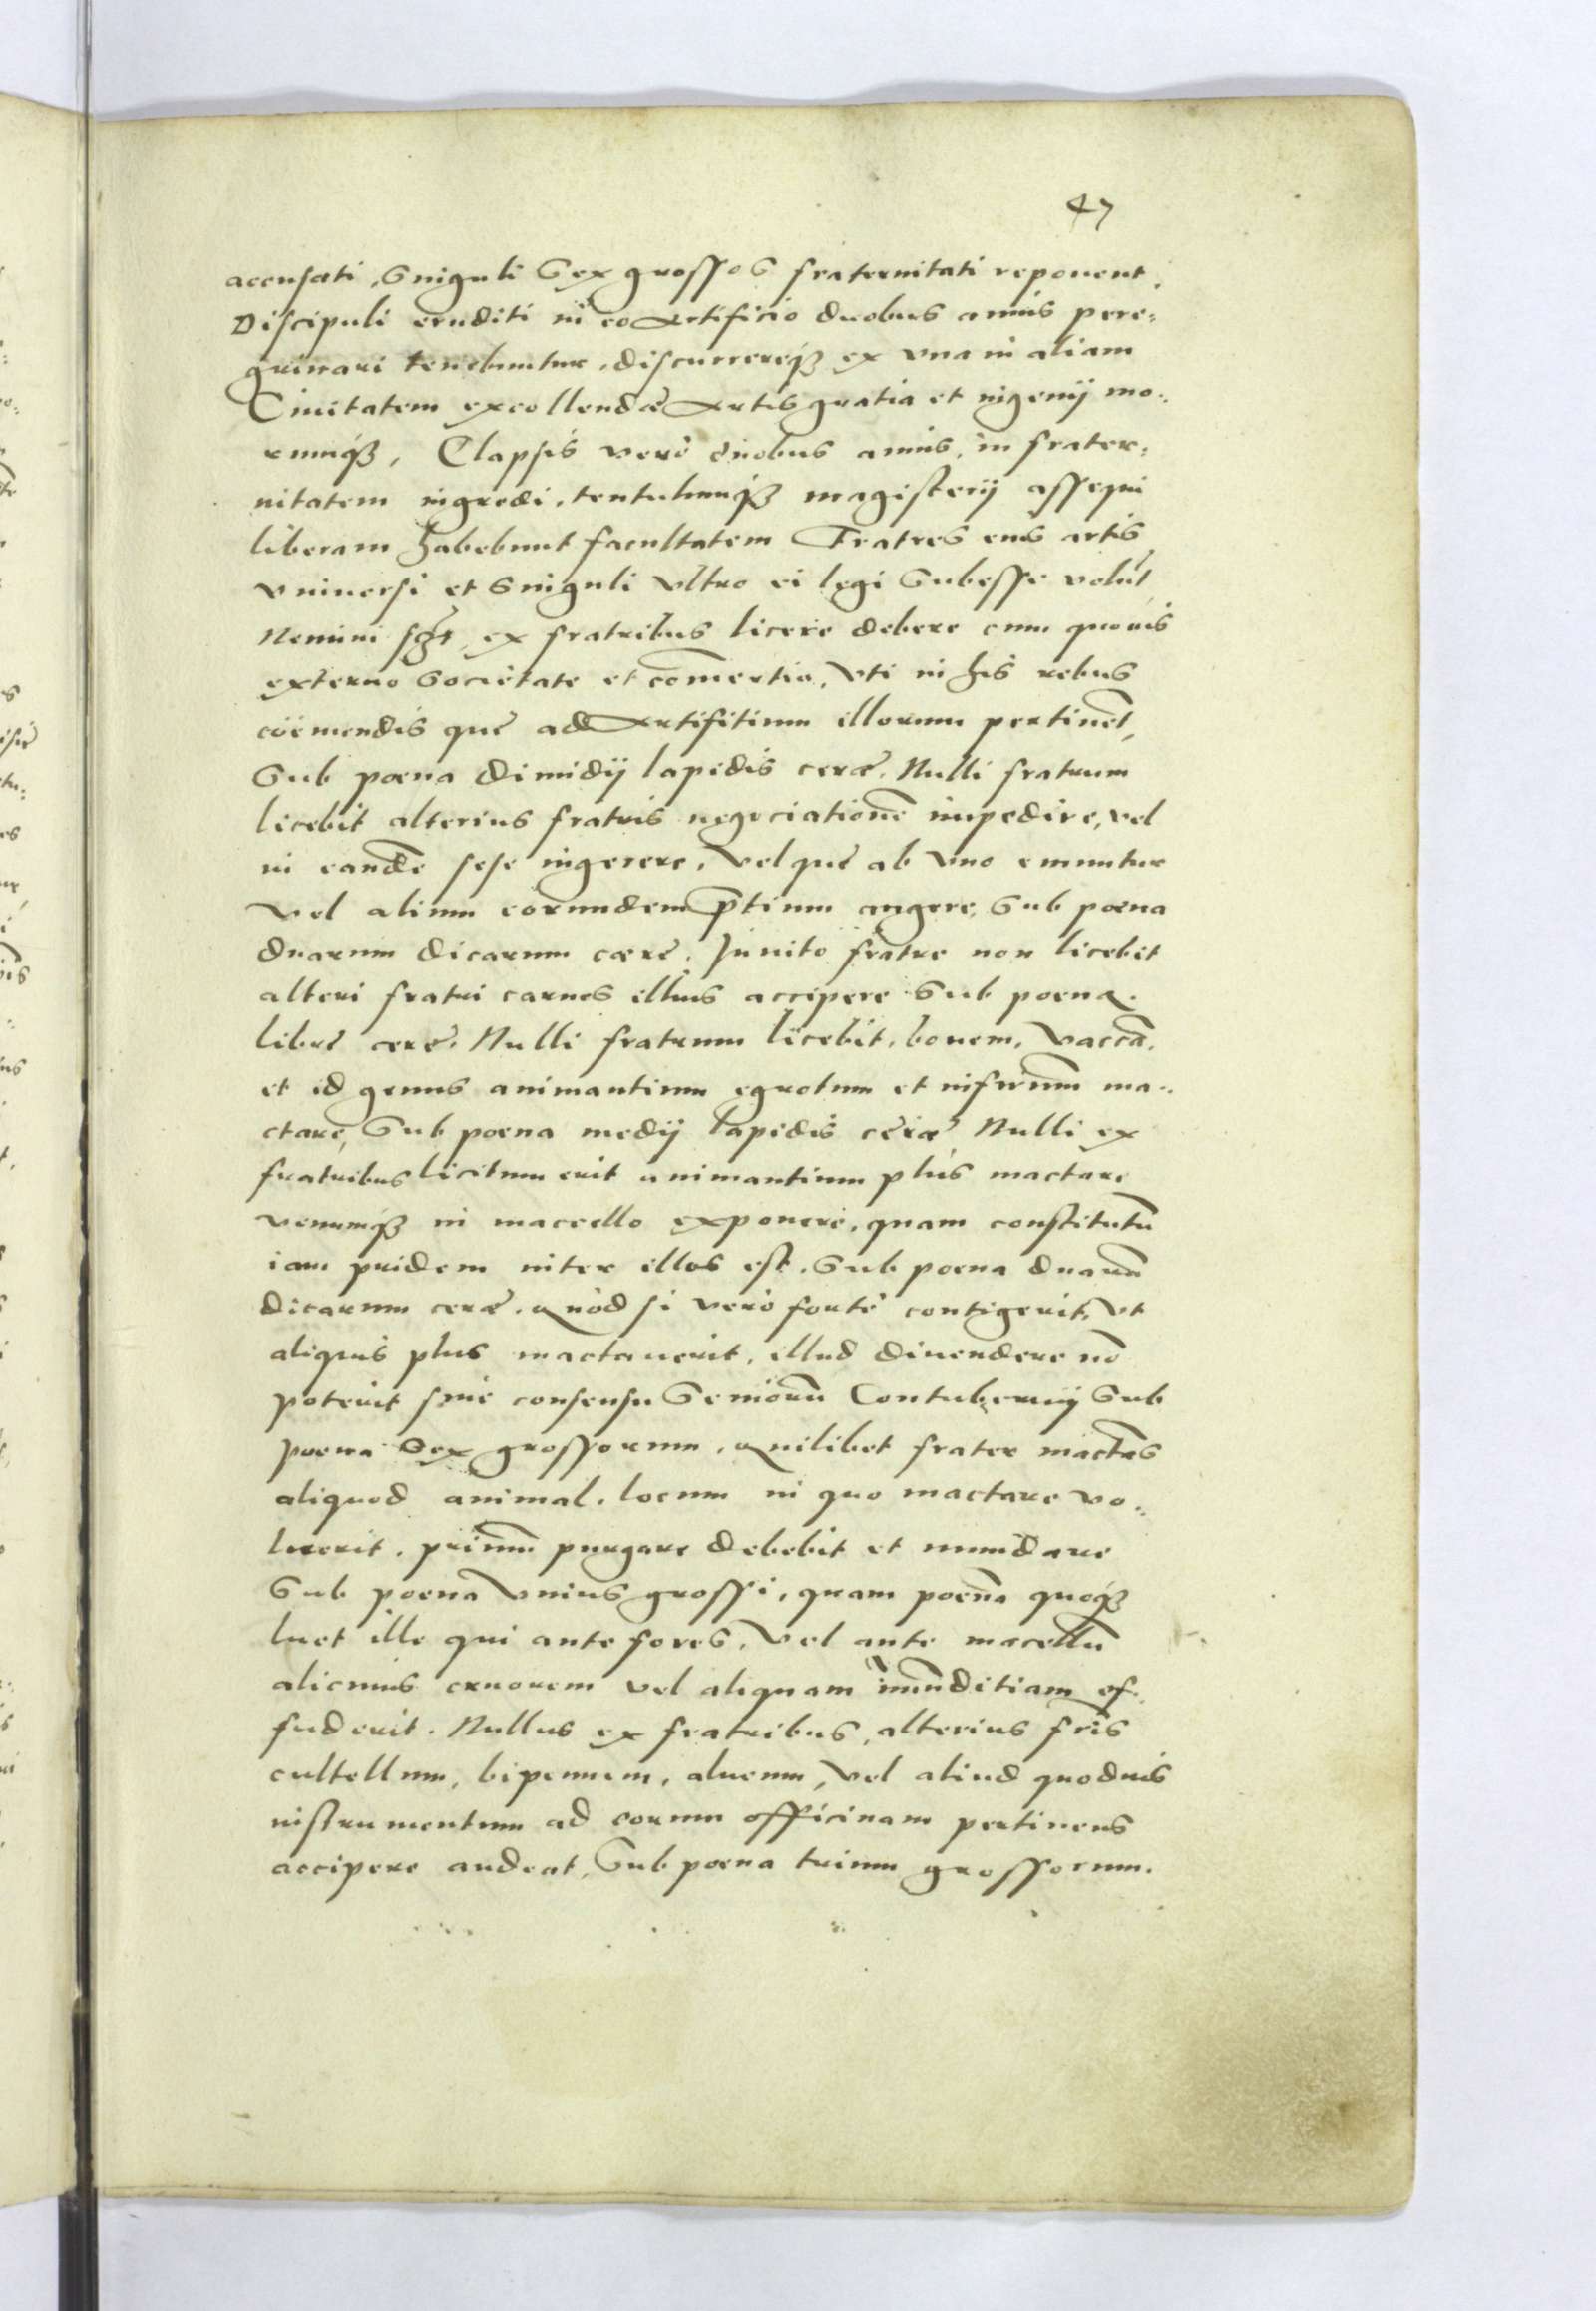 47
accusati, Singuli Sex grossos fraternitati reponent,
Discipuli eruditi in eo Artificio duobus annis pere:
grinari tenebuntur, discurrereqꝫ ex vna in aliam
Ciuitatem excollendæ Artis gratia et ingenij mo:
rumqꝫ, Elapsis vero duobus annis, in frater:
nitatem ingredi, tentulumqꝫ magisterij assequi
liberam habebunt facultatem Fratres eius artis
vniuersi et Singuli Vltro ei legi Subesse volūt,
Nemini ex fratribus licere debere cum quouis
externo Societate et com̄ertio, Vti in his rebus
coëmendis que ad Artifitium illorum pertinēt,
Sub pœna dimidij lapidis ceræ, Nulli fratrum
licebit alterius fratris negociationē impedire, vel
in eandē sese ingerere, Vel que ab Vno emuntur
Vel alium eorundem p̄tium angere, Sub pœna
duarum dicarum cære, Inuito fratre non licebit
alteri fratri carnes illius accipere Sub poena
libre cere, Nulli fratrum licebit, bouem, Vaccā,
et id genus animantium egrotum et infirmū ma:
ctare, Sub poena medij lapidis ceræ Nulli ex
fratribus licitum erit animantium plus mactare
venumqꝫ in maccello exponere, quam constitutū
iam pridem inter illos est, Sub poena duarū
dicarum ceræ, Quod si vero forte contigerit, Vt
aliquis plus mactauerit, illud diuendere nō
poterit sine consensu Seniorū Contubernij Sub
poena Sex grossorum, Quilibet frater mactās
aliquod animal, locum in quo mactare vo:
luerit, primū purgare debebit et mundare
Sub poena Vnius grossi, quam poenā quoqꝫ
luet ille qui ante fores, Vel ante macellū
alicuius cruorem vel aliquam im̄unditiam ef:
fuderit. Nullus ex fratribus, alterius fr̄is
cultellum, bipennem, alueum, Vel aliud quoduis
instrumentum ad eorum officinam pertinens
accipere audeat, Sub poena trium grossorum.